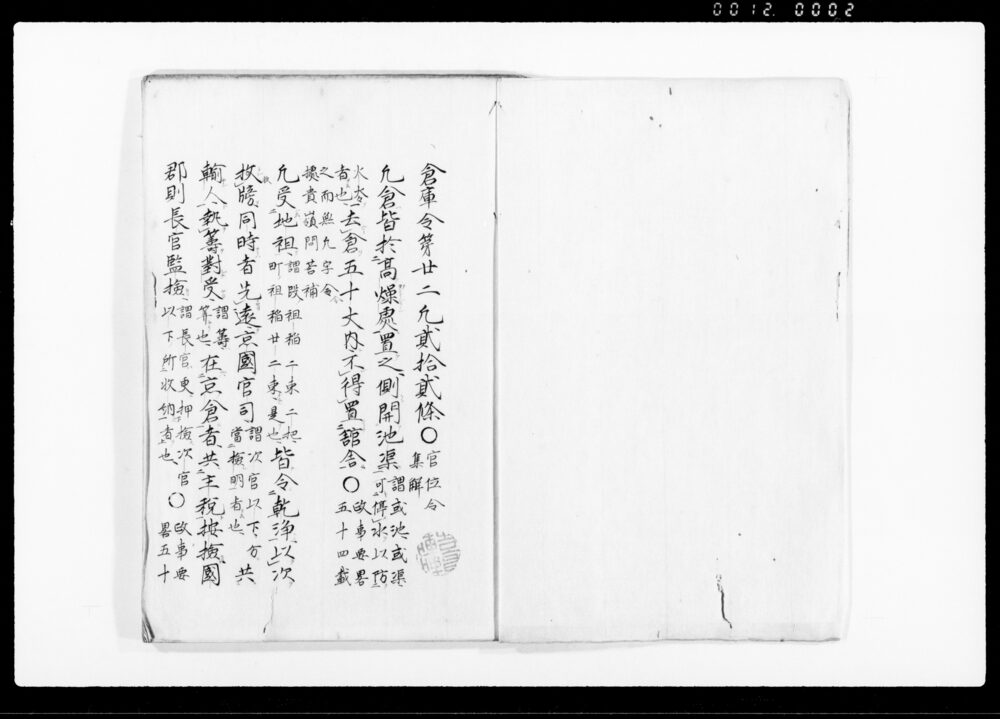 0012 0002
倉庫令第廿二凡貳拾貳條〇官位令集解
凡倉皆於高燥處置之側開池渠謂或池或渠可停水以防
火灾者也去倉五十丈内不得置舘舎〇政事要畧五十四載
之而無凡字令
損貴嶺問荅補
凡受地租謂段租稲二束二把町租稲廿二束是也皆令乾浄以次
收牓同時者先遠京國官司謂次官以下方當檢明者也共
輸人執籌對受謂籌算也在京倉者共主税按撿國
郡則長官監撿謂長官更押撿次官以下所收納者也〇政事要畧五十